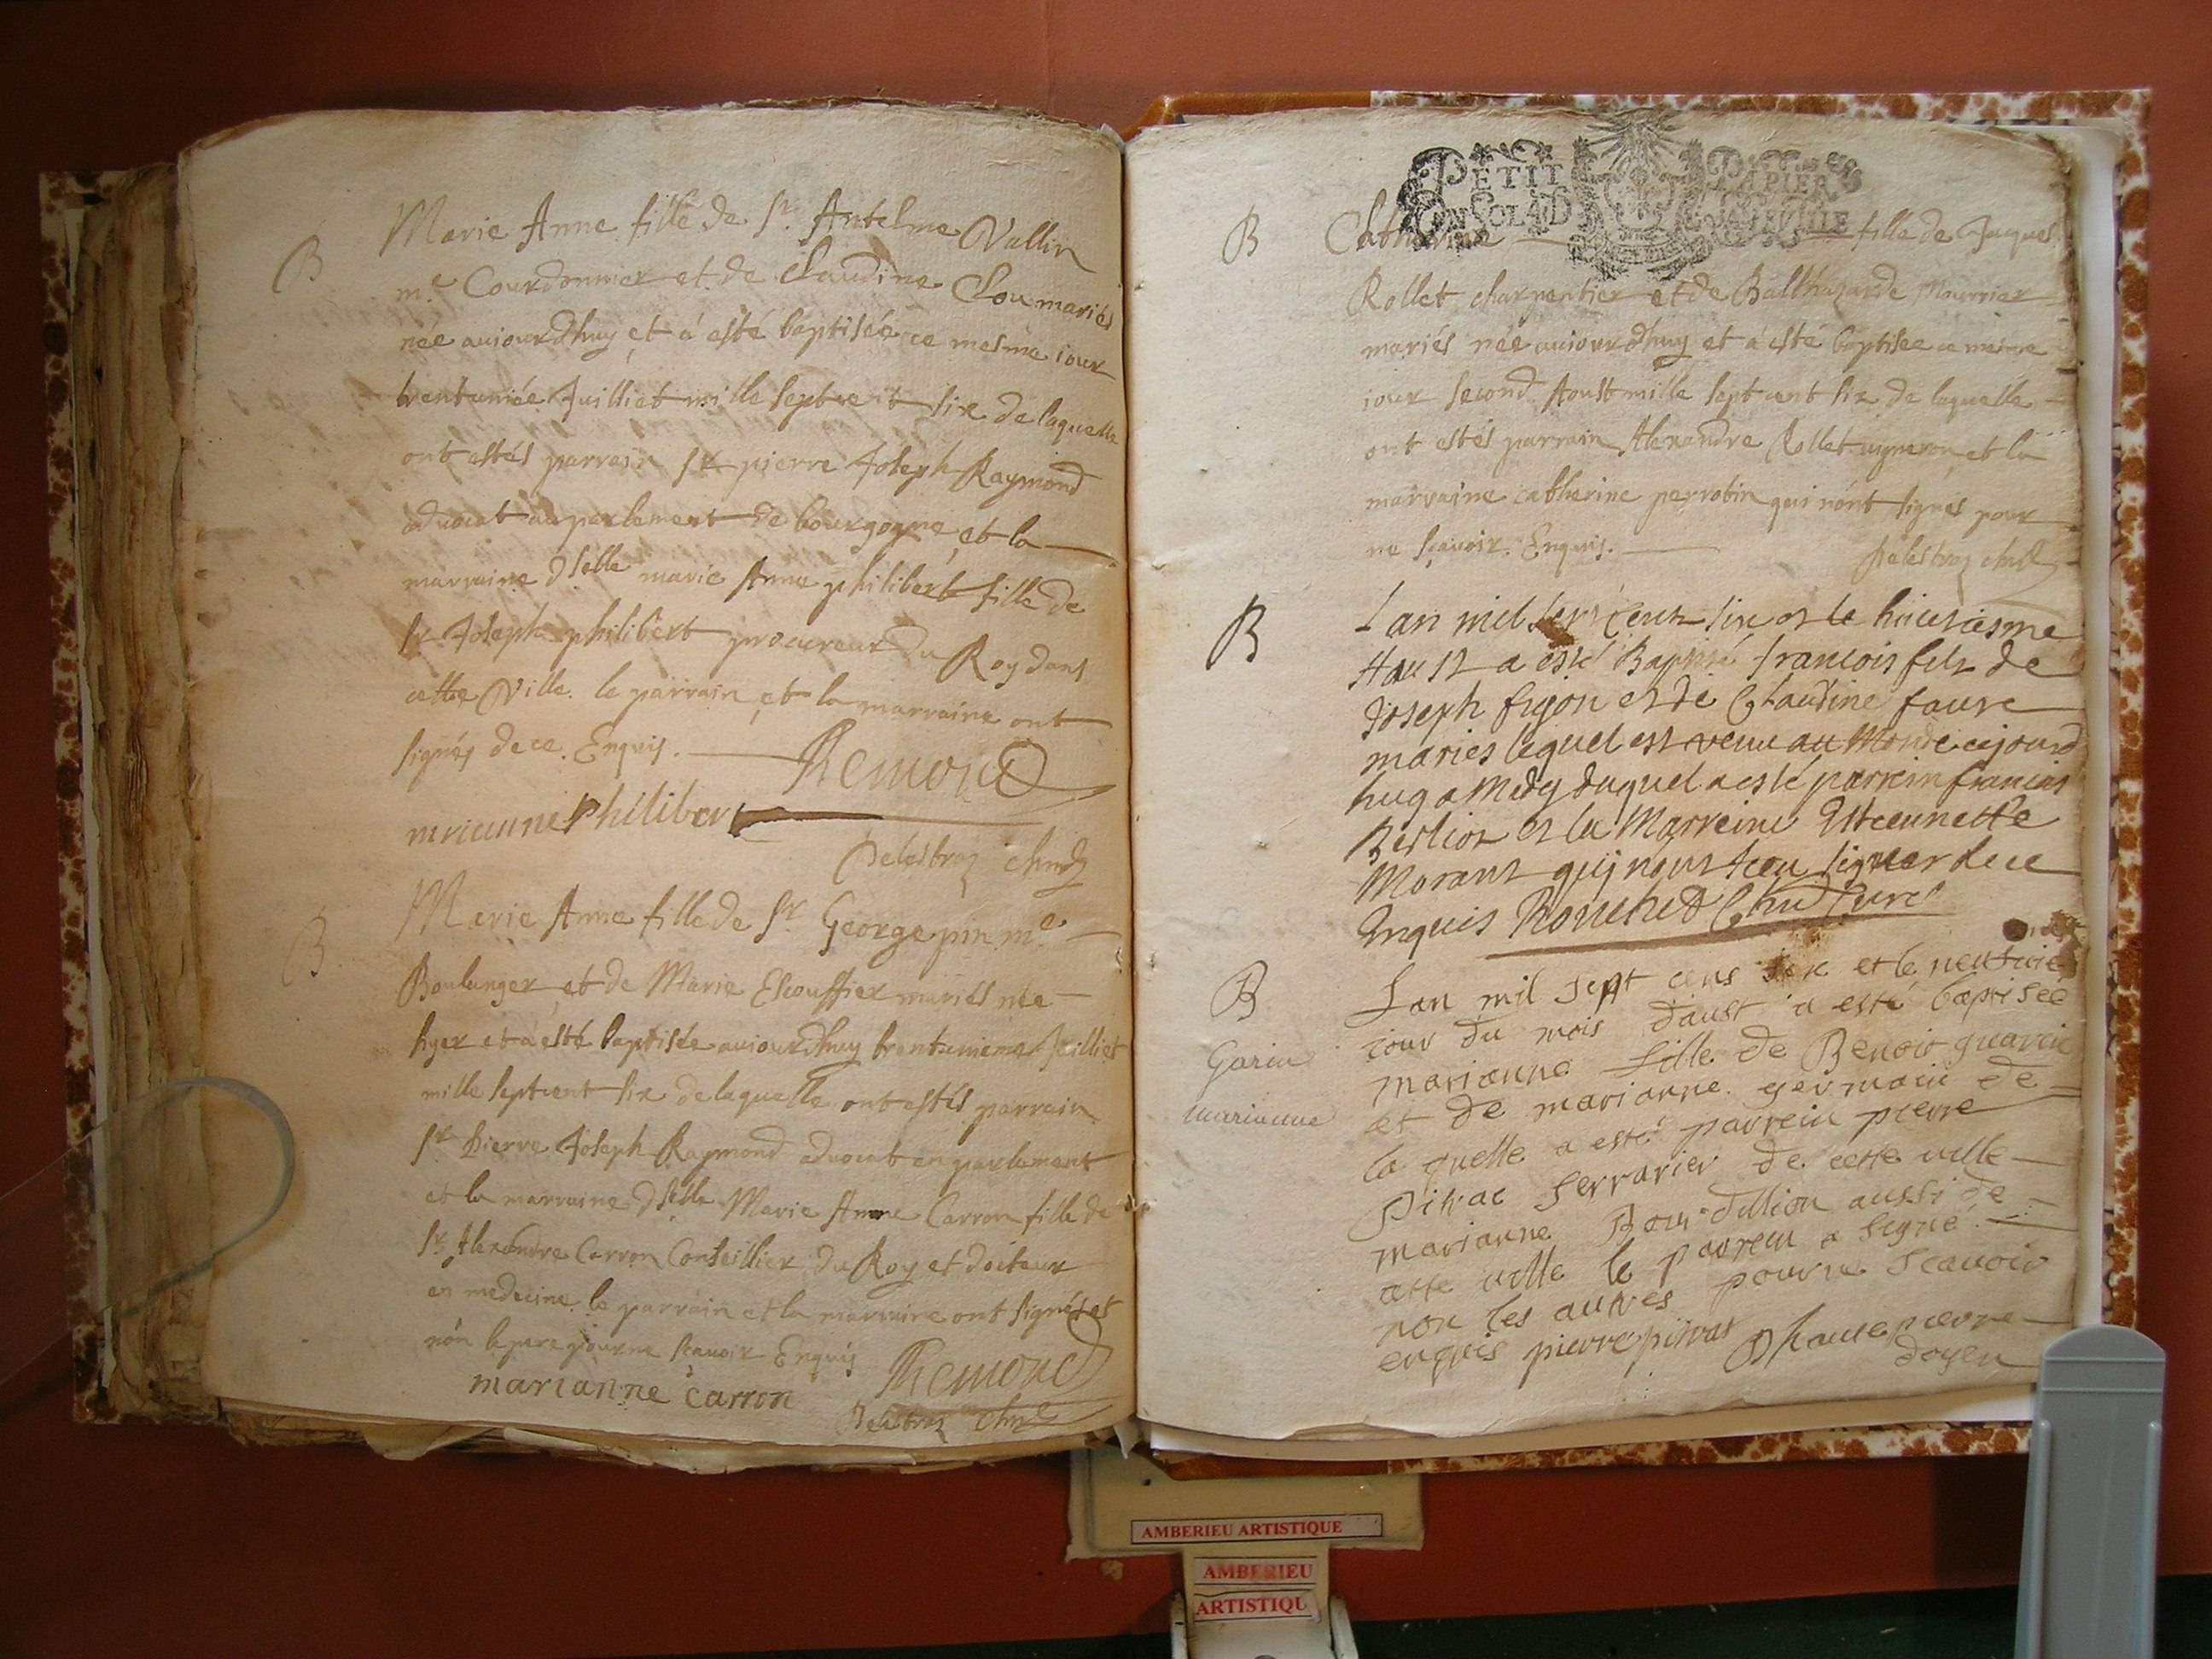 B
Marie Anne fille de Sr. Antelme Vallin
me. Courdonnier et de Claudine Clou mariés
née auiourdhuy et à esté baptisée ce mesme iour
trenteuniée Juilliet mille septcent six de laquelle
ont estés parrain Sr pierre Joseph Raymond
aduocat au parlement de bourgogne et la
marraine dselle marie Anne philibert fille de
Sr Joseph philibert procureur du Roy dans
cette Ville. le parrain et la marraine ont
signés de ce Enquis.
Remond
marianne Philibert
Delestraz
B
Marie Anne fille de Sr George pin me.
Boulanger et de Marie Escouffier mariés née
hyer et à esté baptisée auiourdhuy trentunieme Juilliet
mille septcent six de laquelle ont estés parrain
Sr Pierre Joseph Raymond aduocat en parlement
et la marraine dselle Marie Anne Carron fille de
Sr Alexandre Carron Conseillier du Roy et docteur
en medecine le parrain et la marraine ont signés et
nón le pere pour ne scauoir Enquis
Remond
marianne carron
Delestraz
PETIT PAPIER
B
Catherine fille de Jaques
Rollet charpentier et de Balthazarde Mourrier
mariés née auiourdhuy et à esté baptisee ce mesme
iour second Aoust mille sept cent six de laquelle
ont estés parrain Alexandre Rollet uigneron et la
marraine catherine perrotin qui nónt signés pour
ne scauoir. Enquis.
Delestraz
B
Lan mil sept cent six et le huictiesme
Aaust a esté Baptisé francois fils de
Joseph figon et de Claudine faure
maries lequel est venu au Monde aujourd
huy a Midy duquel a esté parrein francois
Berliot et la Marreine Estiennette
Morant quij nont sceu signer de ce
Enquis Curé
B
Garin
marianne
Lan mil sept cens six et le neufuie
iour du mois daust a esté baptisée
marianne fille de Benoit guarin
et de marianne germain de
la quelle a esté parrein pierre
Pitrat serrurier de cette uille
marianne Bourdillion aussi de
cette uille le parrein a signé
non les autres pour ne scauoir
enquis pierre pitrat
Dhautepierre
doyen
AMBERIEU ARTISTIQUE
AMBERIEU
ARTISTIQU